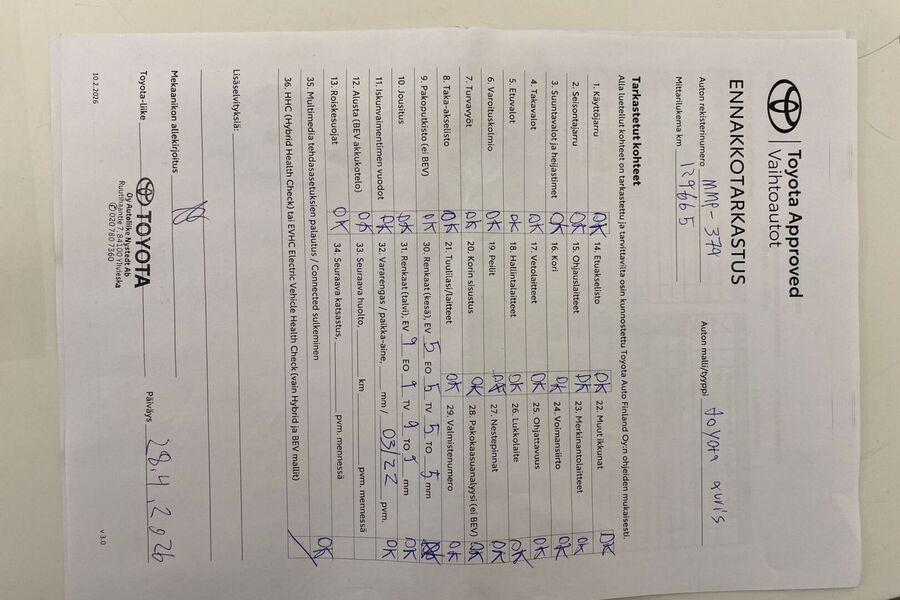 Toyota Approved
Vaihtoautot
ENNAKKOTARKASTUS
Auton rekisterinumero MMP-379 Auton malli/tyyppi toyota auris
Mittarilukema km 129665
Tarkastetut kohteet
Alla luetellut kohteet on tarkastettu ja tarvittavilta osin kunnostettu Toyota Auto Finland Oy:n ohjeiden mukaisesti.
1. Käyttöjarru OK 14. Etuakselisto OK 22. Muut ikkunat OK
2. Seisontajarru OK 15. Ohjauslaitteet OK 23. Merkinantolaitteet OK
3. Suuntavalot ja heijastimet OK 16. Kori OK 24. Voimansiirto OK
4. Takavalot OK 17. Vetolaitteet OK 25. Ohjattavuus OK
5. Etuvalot OK 18. Hallintalaitteet OK 26. Lukkolaite OK
6. Varoituskolmio OK 19. Peilit OK 27. Nestepinnat OK
7. Turvavyöt OK 20. Korin sisustus OK 28. Pakokaasuanalyysi (ei BEV) OK
8. Taka-akselisto OK 21. Tuulilasi/laitteet OK 29. Valmistenumero OK
9. Pakoputkisto (ei BEV) OK 30. Renkaat (kesä), EV 5 EO 5 TV 5 TO 5 mm OK
10. Jousitus OK 31. Renkaat (talvi), EV 9 EO 9 TV 9 TO 9 mm OK
11. Iskunvaimentimen vuodot OK 32. Vararengas / paikka-aine, mm / 03/22 pvm. OK
12. Alusta (BEV akkukotelo) OK 33. Seuraava huolto, km pvm. mennessä
13. Roiskesuojat OK 34. Seuraava katsastus, pvm. mennessä
35. Multimedia tehdasasetuksien palautus / Connected sulkeminen OK
36. HHC (Hybrid Health Check) tai EVHC Electric Vehicle Health Check (vain Hybrid ja BEV mallit)
Lisäselvityksiä:
Mekaanikon allekirjoitus
Toyota-liike TOYOTA Päiväys 28.4.2026
Oy Autoliike Nystedt Ab
Ruutihaantie 7, 84100 Ylivieska
020 780 7360
10.2.2026 v 3.0